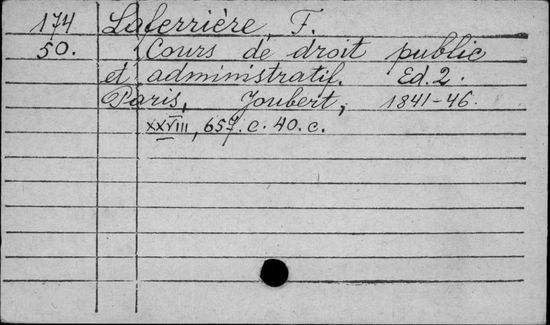 174 Laferrière F.
50. Cours de droit public
et administratif. Ed. 2.
Paris, Joubert, 1841-46.
XXVIII, 657. c. 40. c.